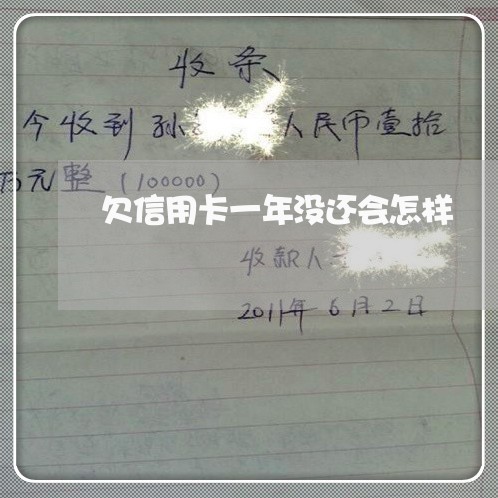 收条
今收到孙 人民币壹拾
万元整(100000)
欠信用卡一年没还会怎样
收款人
2011年6月2日